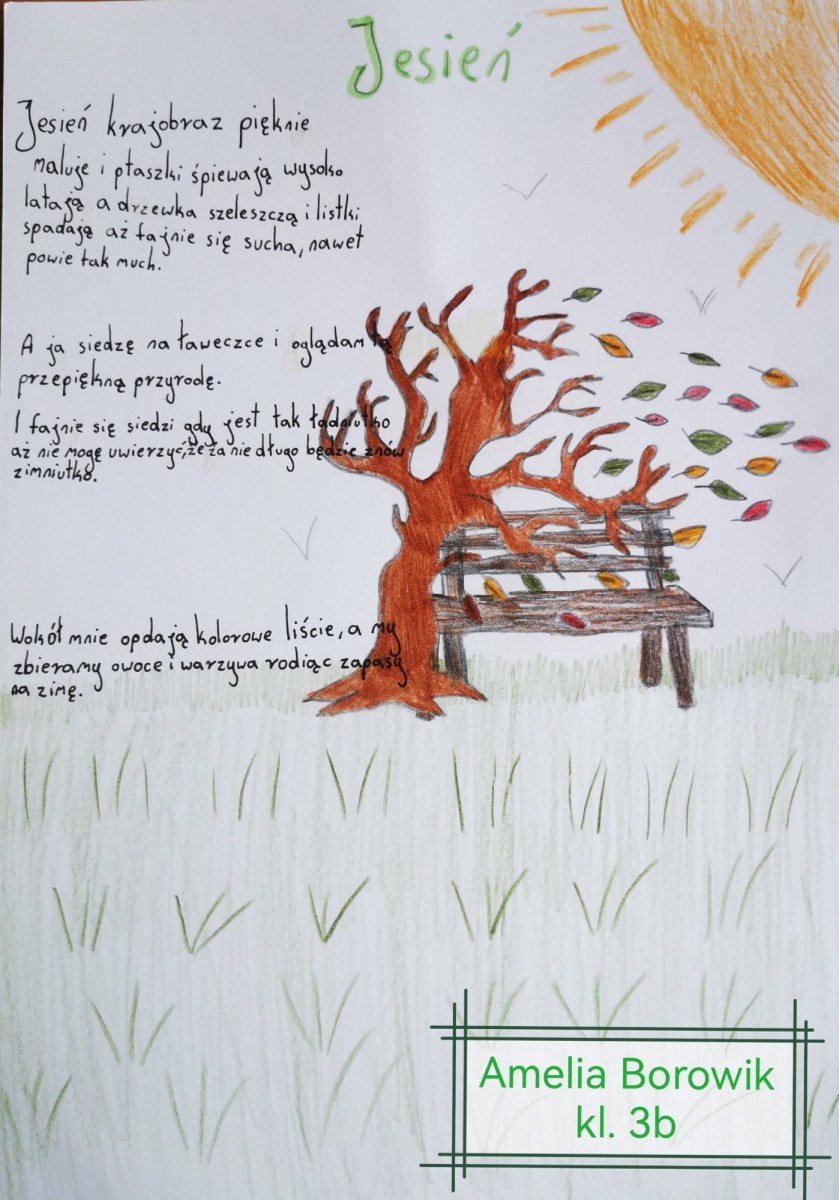 Jesień
Jesień krajobraz pięknie
maluje i ptaszki śpiewają wysoko
latają a drzewka szeleszczą i listki
spadają aż fajnie się sucha, nawet
powie tak much.
A ja siedzę na ławeczce i oglądam tą
przepiękną przyrodę.
I fajnie się siedzi gdy jest tak ładniutko
aż nie mogę uwierzyć, że za nie długo będzie znów
zimniutko.
Wokół mnie opdają kolorowe liście, a my
zbieramy owoce i warzywa rodiąc zapasy
na zimę.
Amelia Borowik
kl. 3b